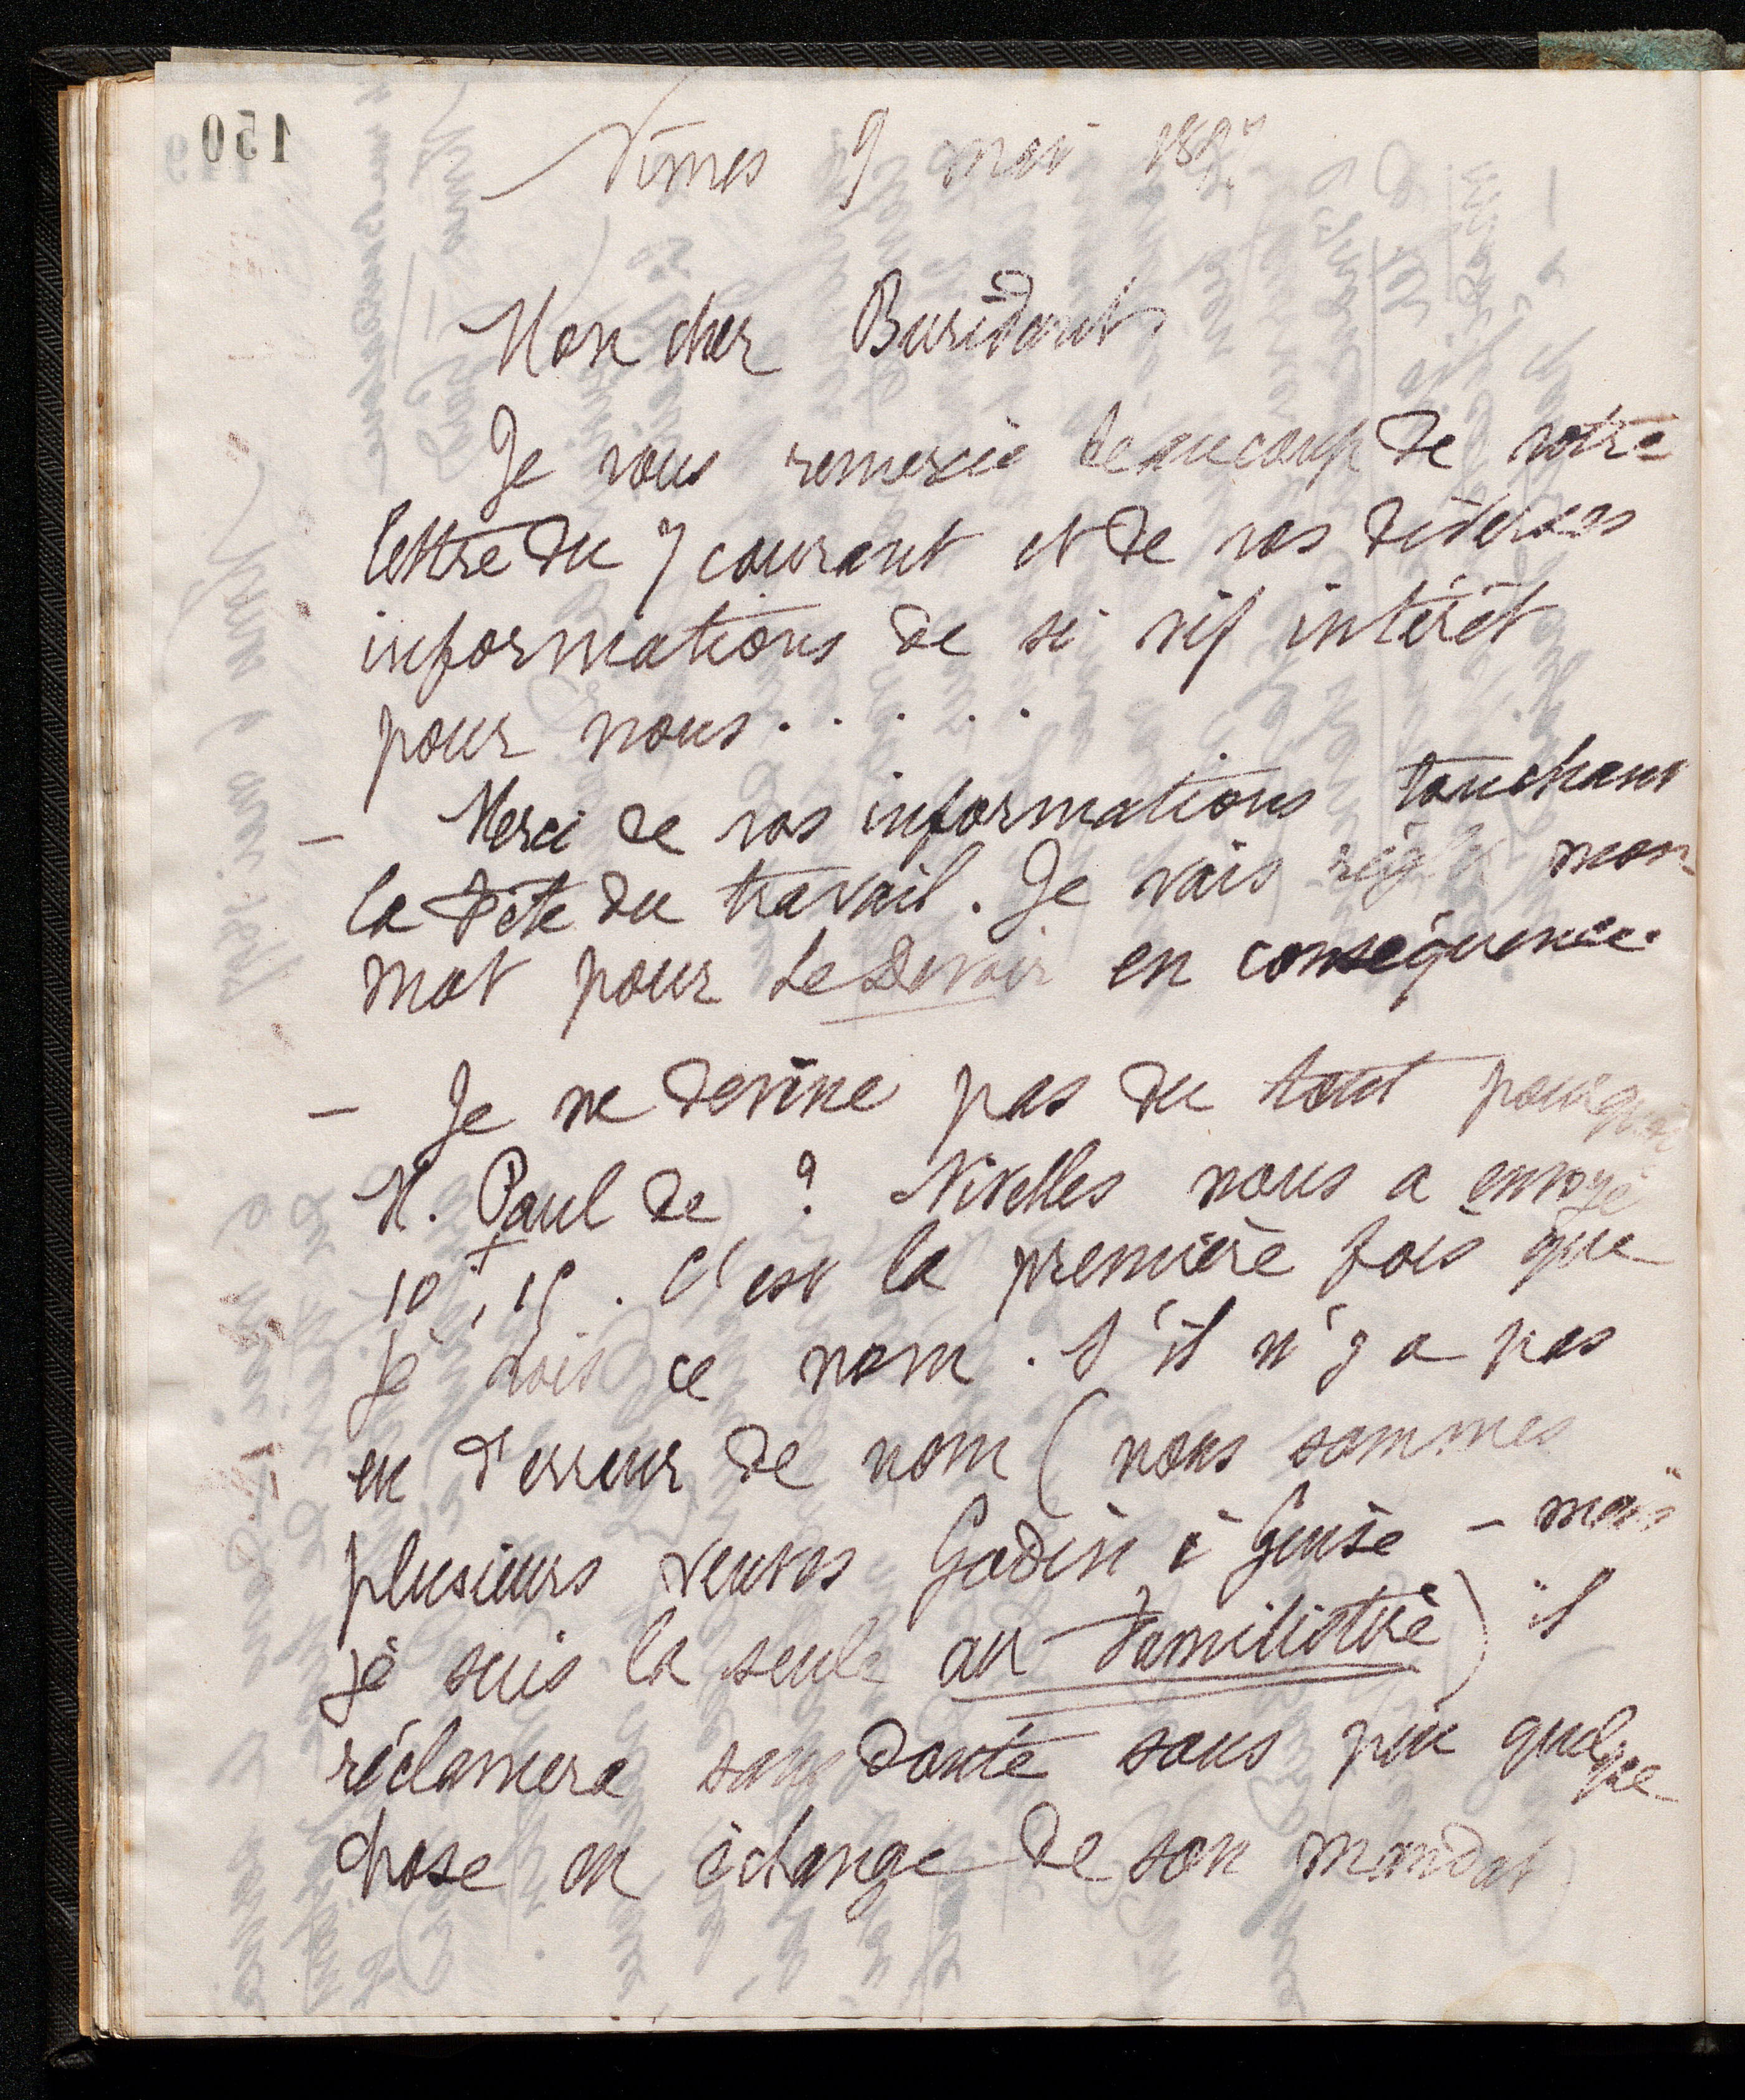 150
Nîmes 9 mai 1897
Mon cher Buridant
Je vous remercie beaucoup de votre
lettre du 7 courant et de vos diverses
informations de si vif intérêt
pour nous.....
— Merci de vos informations touchant
la Fête du travail. Je vais régler mon
mot pour Le Devoir en conséquence.
— Je ne devine pas du tout pourquoi
M. Paul de ? Nivelles nous a envoyé
10f, 15. C'est la première fois que
je vois ce nom. S'il n'y a pas
eu d'erreur de nom (nous sommes
plusieurs veuves Godin à Guise — mais
je suis la seule au Familistère) il
réclamera sans doute sous peu quelque
chose en échange de son mandat